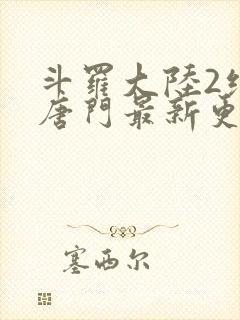 斗羅大陸2
唐門最新更
塞西尔